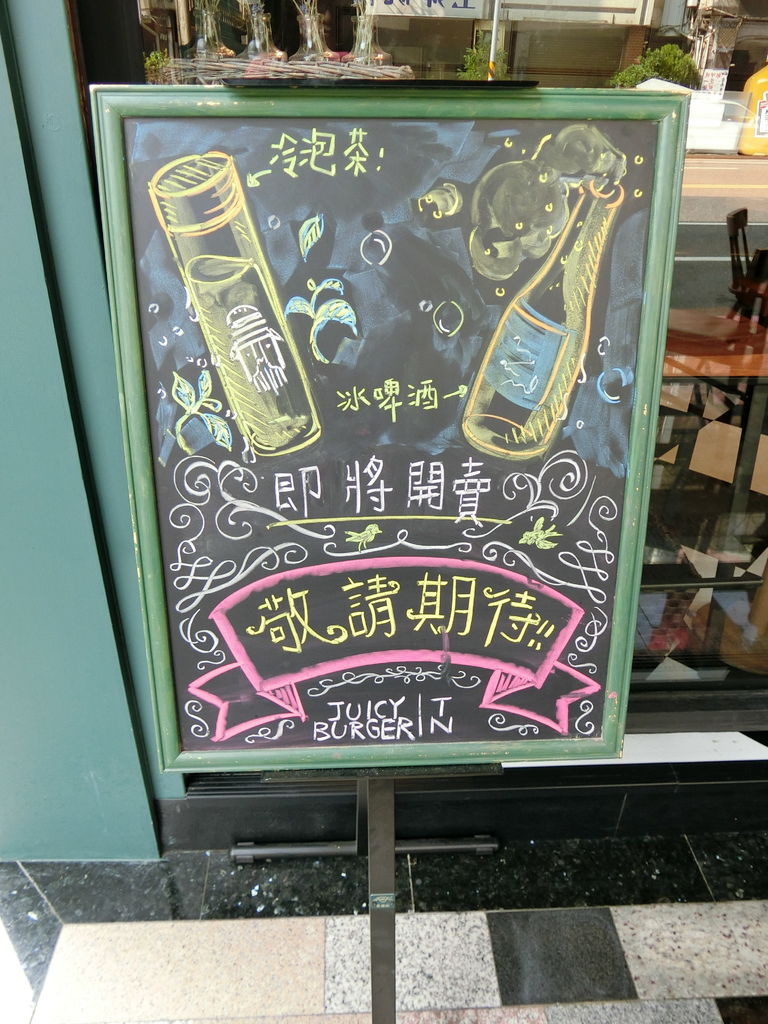 冷泡茶!
冰啤酒→
即將開賣
敬請期待!!
JUICY | T
BURGER | N